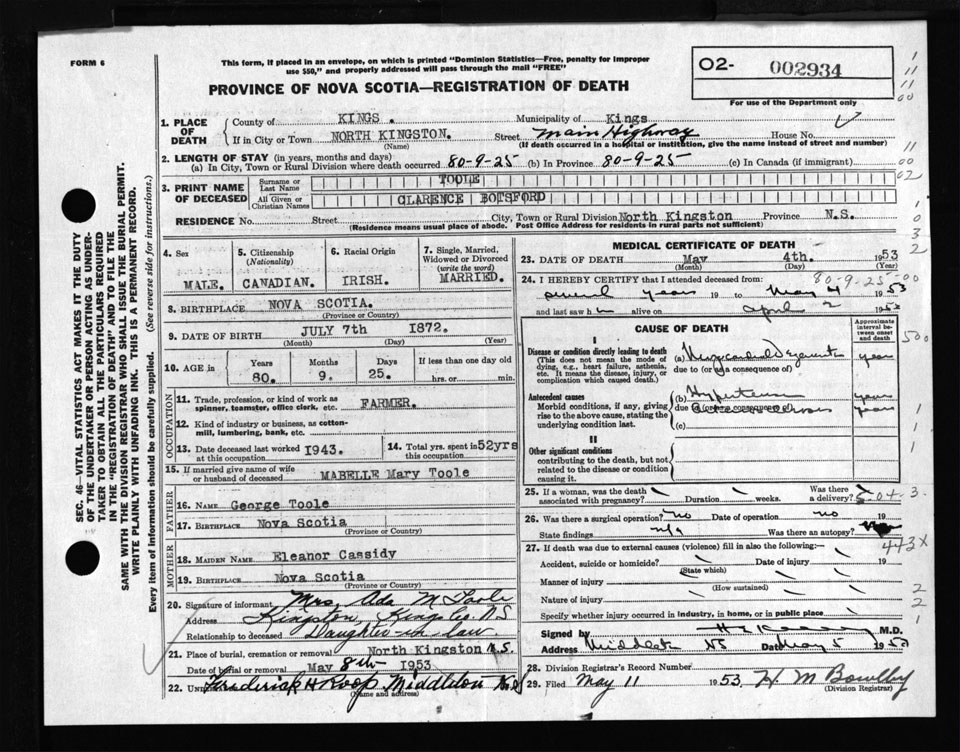 FORM 6
This form, if placed in an envelope, on which is printed "Dominion Statistics—Free, penalty for improper
use $50," and properly addressed will pass through the mail "FREE"
PROVINCE OF NOVA SCOTIA—REGISTRATION OF DEATH
O2- 002934
For use of the Department only
1. PLACE OF DEATH
County of KINGS . Municipality of Kings
If in City or Town NORTH KINGSTON. Street Main Highway House No.
(Name) (If death occurred in a hospital or institution, give the name instead of street and number)
2. LENGTH OF STAY (in years, months and days)
(a) In City, Town or Rural Division where death occurred 80-9-25 (b) In Province 80-9-25 (c) In Canada (if immigrant)
3. PRINT NAME OF DECEASED
Surname or Last Name TOOLE
All Given or Christian Names CLARENCE BOTSFORD
RESIDENCE No. Street City, Town or Rural Division North Kingston Province N.S.
(Residence means usual place of abode. Post Office Address for residents in rural parts not sufficient)
4. Sex MALE.
5. Citizenship (Nationality) CANADIAN.
6. Racial Origin IRISH.
7. Single, Married, Widowed or Divorced (write the word) MARRIED.
8. BIRTHPLACE NOVA SCOTIA.
(Province or Country)
9. DATE OF BIRTH JULY 7th 1872.
(Month) (Day) (Year)
10. AGE in Years 80. Months 9. Days 25. If less than one day old hrs. or min.
OCCUPATION
11. Trade, profession, or kind of work as spinner, teamster, office clerk, etc. FARMER.
12. Kind of industry or business, as cotton-mill, lumbering, bank, etc.
13. Date deceased last worked at this occupation 1943.
14. Total yrs. spent in this occupation 52yrs
15. If married give name of wife or husband of deceased MABELLE Mary Toole
FATHER
16. NAME George Toole
17. BIRTHPLACE Nova Scotia
(Province or Country)
MOTHER
18. MAIDEN NAME Eleanor Cassidy
19. BIRTHPLACE Nova Scotia
(Province or Country)
20. Signature of informant Mrs. Ada M Toole
Address Kingston, Kings Co. N.S
Relationship to deceased Daughter-in-law.
21. Place of burial, cremation or removal North Kingston N.S.
Date of burial or removal May 8th 1953
22. Frederick H Roop, Middleton N.S
(Name and address)
MEDICAL CERTIFICATE OF DEATH
23. DATE OF DEATH May 4th. 1953
(Month) (Day) (Year)
80-9-25-00
24. I HEREBY CERTIFY that I attended deceased from:
several years 19 to May 4 1953
and last saw h alive on April 2 195
CAUSE OF DEATH
Approximate interval between onset and death
I
Disease or condition directly leading to death
(This does not mean the mode of dying, e.g., heart failure, asthenia, etc. It means the disease, injury, or complication which caused death.)
(a) years
due to (or as a consequence of)
Antecedent causes
Morbid conditions, if any, giving rise to the above cause, stating the underlying condition last.
(b) Hypertension years
due to (or as a consequence of) years
(c)
II
Other significant conditions
contributing to the death, but not related to the disease or condition causing it.
25. If a woman, was the death associated with pregnancy? Duration weeks. Was there a delivery?
26. Was there a surgical operation? no Date of operation no 19
State findings n/a Was there an autopsy?
443X
27. If death was due to external causes (violence) fill in also the following:—
Accident, suicide or homicide? Date of injury 19
(State which)
Manner of injury
(How sustained)
Nature of injury
Specify whether injury occurred in industry, in home, or in public place
Signed by M.D.
Address Middleton NS Date May 5 1953
28. Division Registrar's Record Number
29. Filed May 11 1953. H M Bowlby
(Division Registrar)
SEC. 46—VITAL STATISTICS ACT MAKES IT THE DUTY
OF THE UNDERTAKER OR PERSON ACTING AS UNDER-
TAKER TO OBTAIN ALL THE PARTICULARS REQUIRED
IN THE "REGISTRATION OF DEATH" AND TO FILE THE
SAME WITH THE DIVISION REGISTRAR WHO SHALL ISSUE THE BURIAL PERMIT.
WRITE PLAINLY WITH UNFADING INK. THIS IS A PERMANENT RECORD.
Every item of information should be carefully supplied. (See reverse side for instructions.)